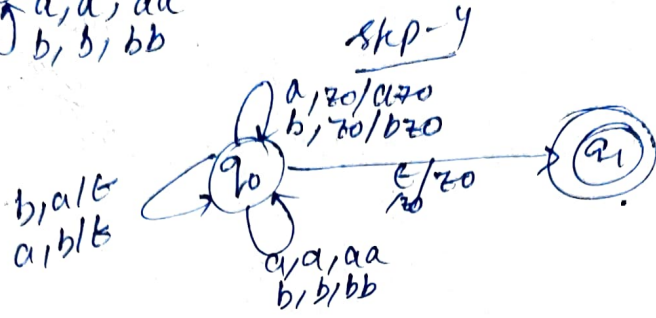 a, a, aa
b, b, bb
step-4
a, z0/az0
b, z0/bz0
q0
ε/z0
z0
q1
b, a/ε
a, b/ε
a, a, aa
b, b, bb